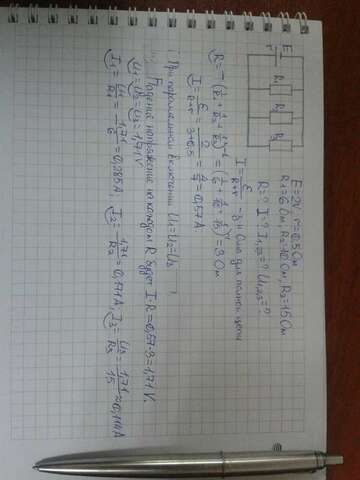 E r
R₁
R₂
R₃
E=2V, r=0,5 Ом
R₁=6 Ом, R₂=10 Ом, R₃=15 Ом
R=? I=? I₁,₂,₃=? U₁,₂,₃=?
I = ε/(R+r) - з-н Ома для полной цепи
R = (1/R₁ + 1/R₂ + 1/R₃)⁻¹ = (1/6 + 1/10 + 1/15)⁻¹ = 3 Ом
I = ε/(R+r) = 2/(3+0,5) = 4/7 = 0,57 A
При параллельном включении U₁=U₂=U₃
Падение напряжение на каждом R будет I·R=0,57·3=1,71 V.
U₁=U₂=U₃=1,71 V
I₁ = U₁/R₁ = 1,71/6 = 0,285 A, I₂ = 1,71/R₂ = 0,171 A, I₃ = U₃/R₃ = 1,71/15 ≈ 0,114 A